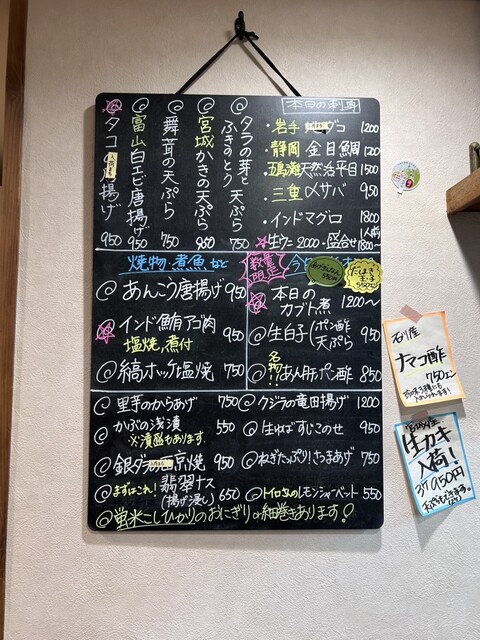 本日の刺身
・岩手 ダコ 1200
・静岡 金目鯛 1200
・五島灘天然活平目 1500
・三重 〆サバ 950
・インドマグロ 1800
☆生ウニ 2000 ・盛合せ 1人前 1800〜
@タラの芽と ふきのとう 天ぷら 750
@宮城 かきの天ぷら 950
@舞茸の天ぷら 750
@富山 白エビ唐揚げ 950
タコ 唐揚げ 950
焼物・煮魚 など
@あんこう唐揚げ 950
インド鮪アゴ肉 950
塩焼、煮付
@縞ホッケ塩焼 750
数量限定
たまき玉子 550
本日の カブト煮 1200〜
@生白子(ポン酢 天ぷら 950
@名物!!あん肝ポン酢 850
@里芋のからあげ 750
@かぶの浅漬 550
※漬盛もあります
@銀ダラ 京焼 950
@まずはこれ! 翡翠ナス (揚げ浸し) 650
@クジラの竜田揚げ 1200
@生ゆばすじこのせ 950
@ねぎたっぷり!さつまあげ 750
@トイロさんのレモンシャーベット 550
@蛍米こしひかりのおにぎりor細巻きあります!
石川産
ナマコ酢
750エン
生カキ
入荷!
3ケ1,150円